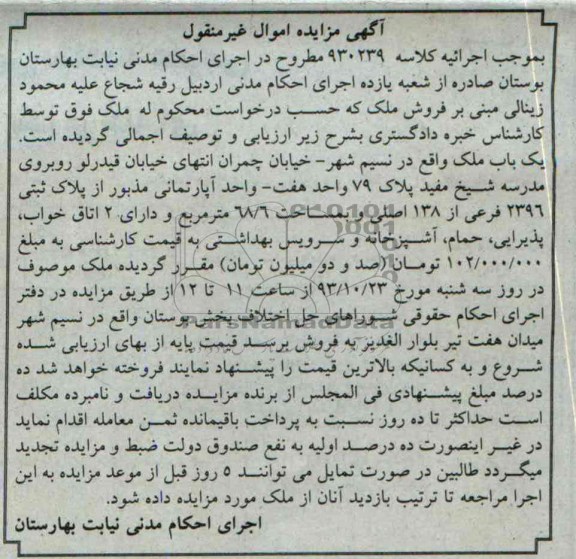 آگهی مزایده اموال غیرمنقول
بموجب اجرائیه کلاسه ۹۳۰۲۳۹ مطروح در اجرای احکام مدنی نیابت بهارستان
بوستان صادره از شعبه یازده اجرای احکام مدنی اردبیل رقیه شجاع علیه محمود
زینالی مبنی بر فروش ملک که حسب درخواست محکوم له ملک فوق توسط
کارشناس خبره دادگستری بشرح زیر ارزیابی و توصیف اجمالی گردیده است.
یک باب ملک واقع در نسیم شهر- خیابان چمران انتهای خیابان قیدرلو روبروی
مدرسه شیخ مفید پلاک ۷۹ واحد هفت- واحد آپارتمانی مذبور از پلاک ثبتی
۲۳۹۶ فرعی از ۱۳۸ اصلی و بمساحت ۶۸/۶ مترمربع و دارای ۲ اتاق خواب،
پذیرایی، حمام، آشپزخانه و سرویس بهداشتی به قیمت کارشناسی به مبلغ
۱۰۲/۰۰۰/۰۰۰ تومان (صد و دو میلیون تومان) مقرر گردیده ملک موصوف
در روز سه شنبه مورخ ۹۳/۱۰/۲۳ از ساعت ۱۱ تا ۱۲ از طریق مزایده در دفتر
اجرای احکام حقوقی شوراهای حل اختلاف بخش بوستان واقع در نسیم شهر
میدان هفت تیر بلوار الغدیر به فروش برسد قیمت پایه از بهای ارزیابی شده
شروع و به کسانیکه بالاترین قیمت را پیشنهاد نمایند فروخته خواهد شد ده
درصد مبلغ پیشنهادی فی المجلس از برنده مزایده دریافت و نامبرده مکلف
است حداکثر تا ده روز نسبت به پرداخت باقیمانده ثمن معامله اقدام نماید
در غیر اینصورت ده درصد اولیه به نفع صندوق دولت ضبط و مزایده تجدید
میگردد طالبین در صورت تمایل می توانند ۵ روز قبل از موعد مزایده به این
اجرا مراجعه تا ترتیب بازدید آنان از ملک مورد مزایده داده شود.
اجرای احکام مدنی نیابت بهارستان